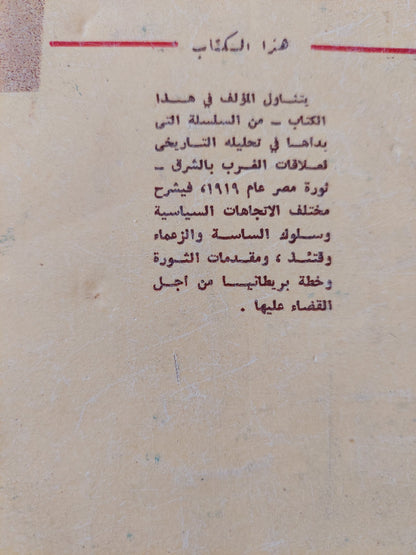 هذا الكتاب
يتناول المؤلف في هذا
الكتاب - من السلسلة التى
بداها في تحليله التاريخى
لعلاقات الغرب بالشرق -
ثورة مصر عام ١٩١٩، فيشرح
مختلف الاتجاهات السياسية
وسلوك الساسة والزعماء
وقتئذ ، ومقدمات الثورة
وخطة بريطانيا من اجل
القضاء عليها .